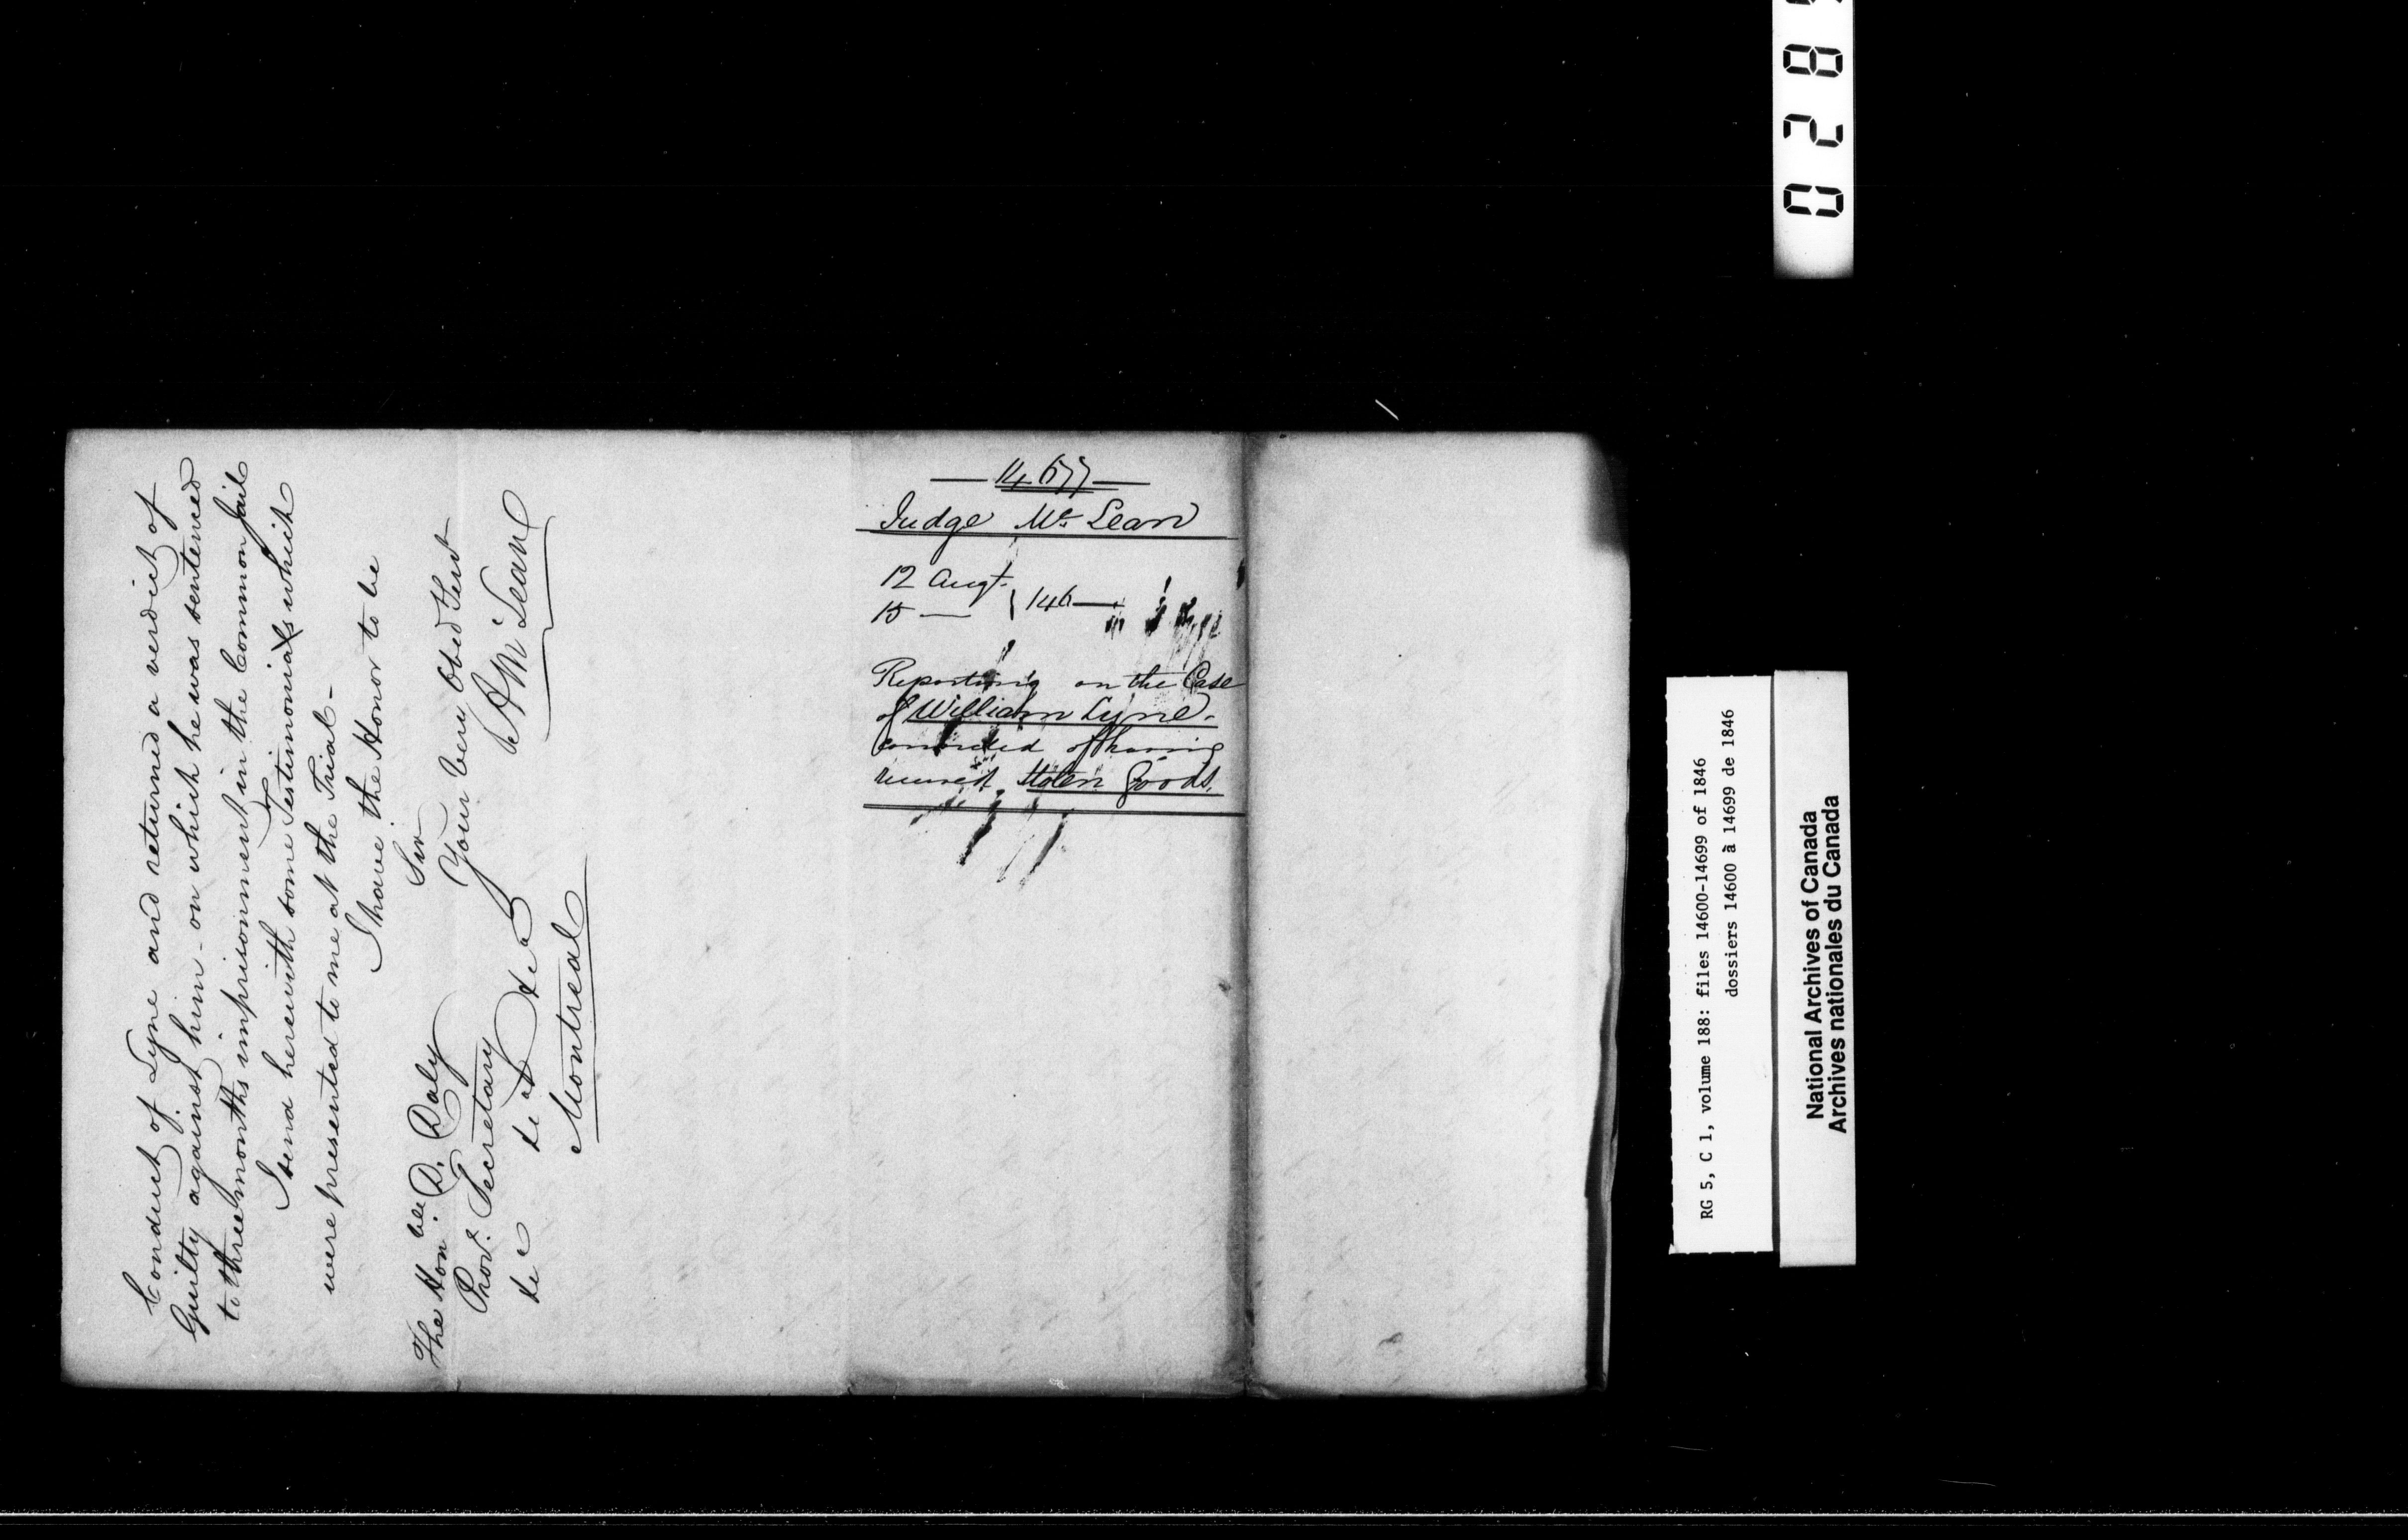 Conduct of Lyne and returned a verdict of
Guilty against him - on which he was sentenced
to three months imprisonment in the Common Jail
I send herewith some Testimonials which
were presented to me at the Trial -
I have the Honor to be
Sir
Your very Obed Servt
A McLean
The Honble D. Daly
Provl Secretary
&c &c &c
Montreal
14677
Judge McLean
12 Augt.
15 — } 146
Reporting on the Case
of William Lyne.
convicted of having
received Stolen Goods.
028
RG 5, C 1, volume 188: files 14600-14699 of 1846
dossiers 14600 à 14699 de 1846
National Archives of Canada
Archives nationales du Canada